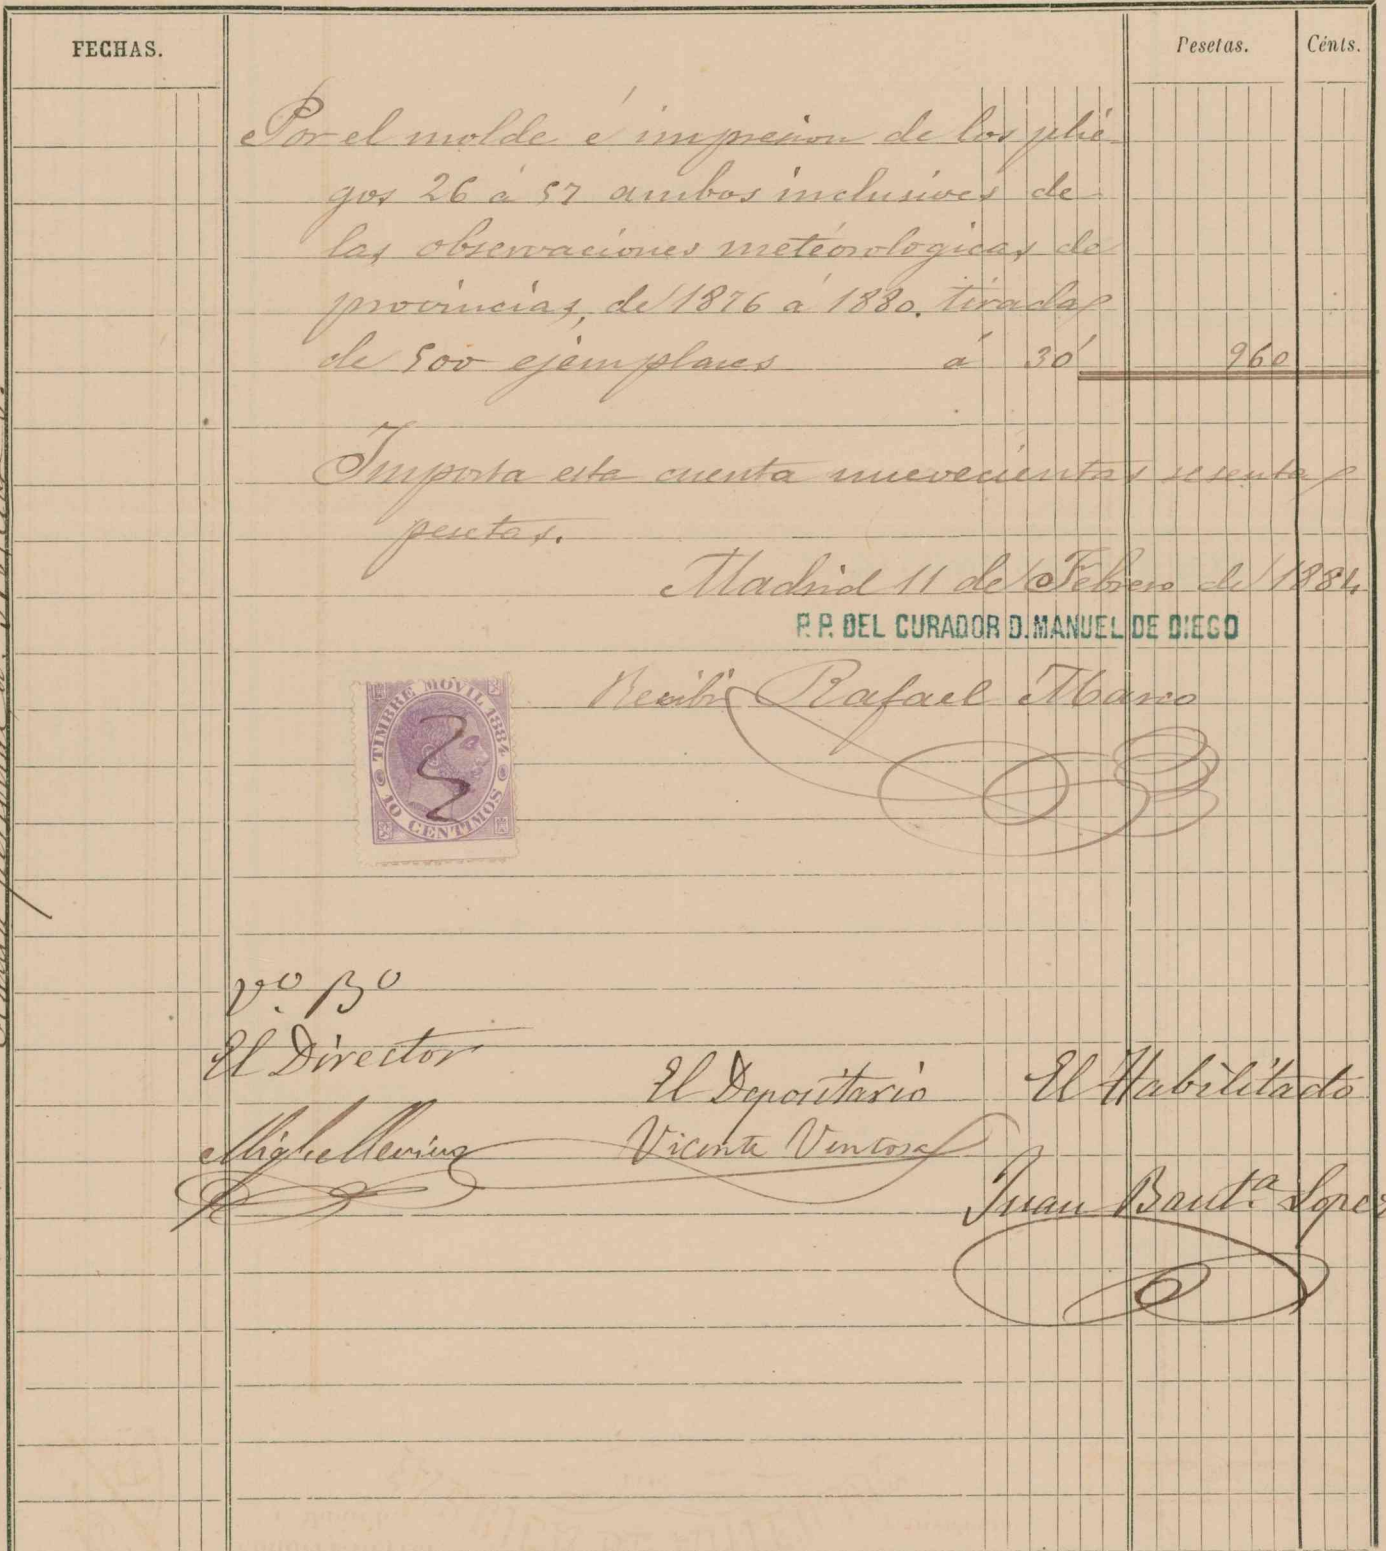 FECHAS.
Pesetas.
Cénts.
Por el molde é impresion de los plie-
gos 26 á 57 ambos inclusives de
las observaciones meteorologicas de
provincias, de 1876 á 1880. tiradas
de 500 ejemplares á 30 960
Importa esta cuenta nuevecientas sesenta
pesetas.
Madrid 11 de Febrero de 1884
P. P. DEL CURADOR D. MANUEL DE DIEGO
Recibí Rafael Marco
TIMBRE MOVIL 1884
10 CENTIMOS
Vº Bº
El Director
El Depositario
El Habilitado
Vicente Ventosa
Juan Bautª Lopez